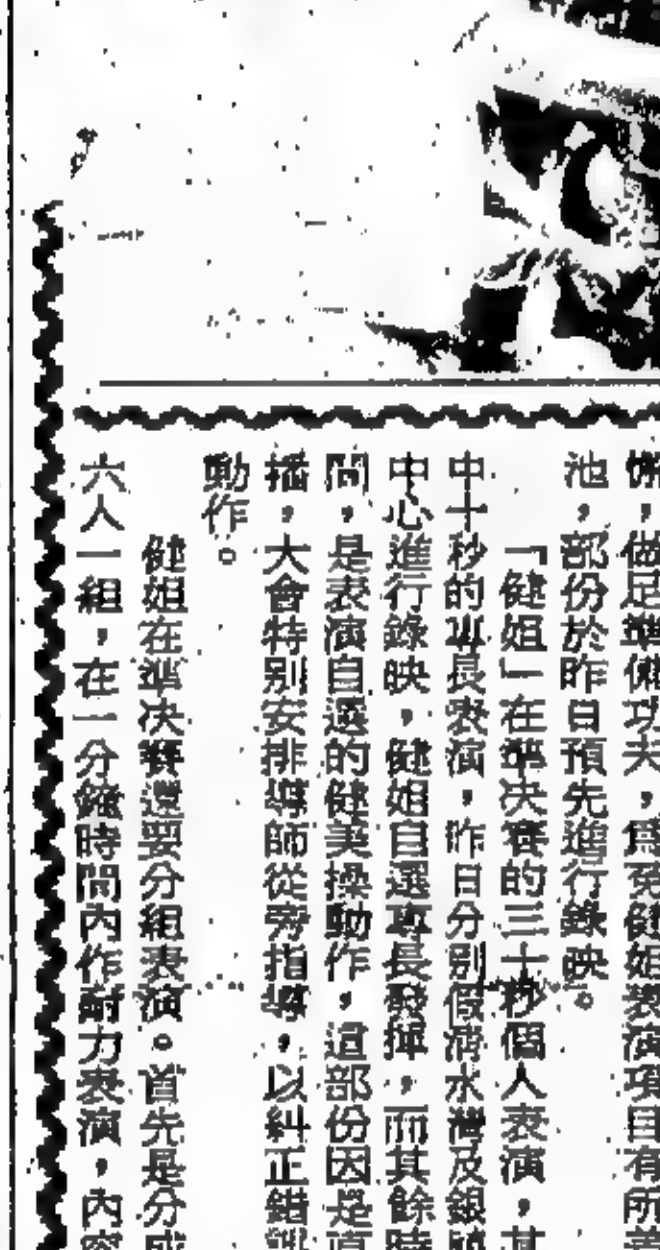 懈，做足準備功夫，為免健姐表演項目有所差
池，部份於昨日預先進行錄映。
「健姐」在準決賽的三十秒個人表演，其
中十秒的專長表演，昨日分別假清水灣及銀
中心進行錄映，健姐自選專長發揮，而其餘時
間，是表演自選的健美操動作，這部份因是直
播，大會特別安排導師從旁指導，以糾正錯誤
動作。
健姐在準決賽還要分組表演。首先是分成
六人一組，在一分鐘時間內作耐力表演，內容